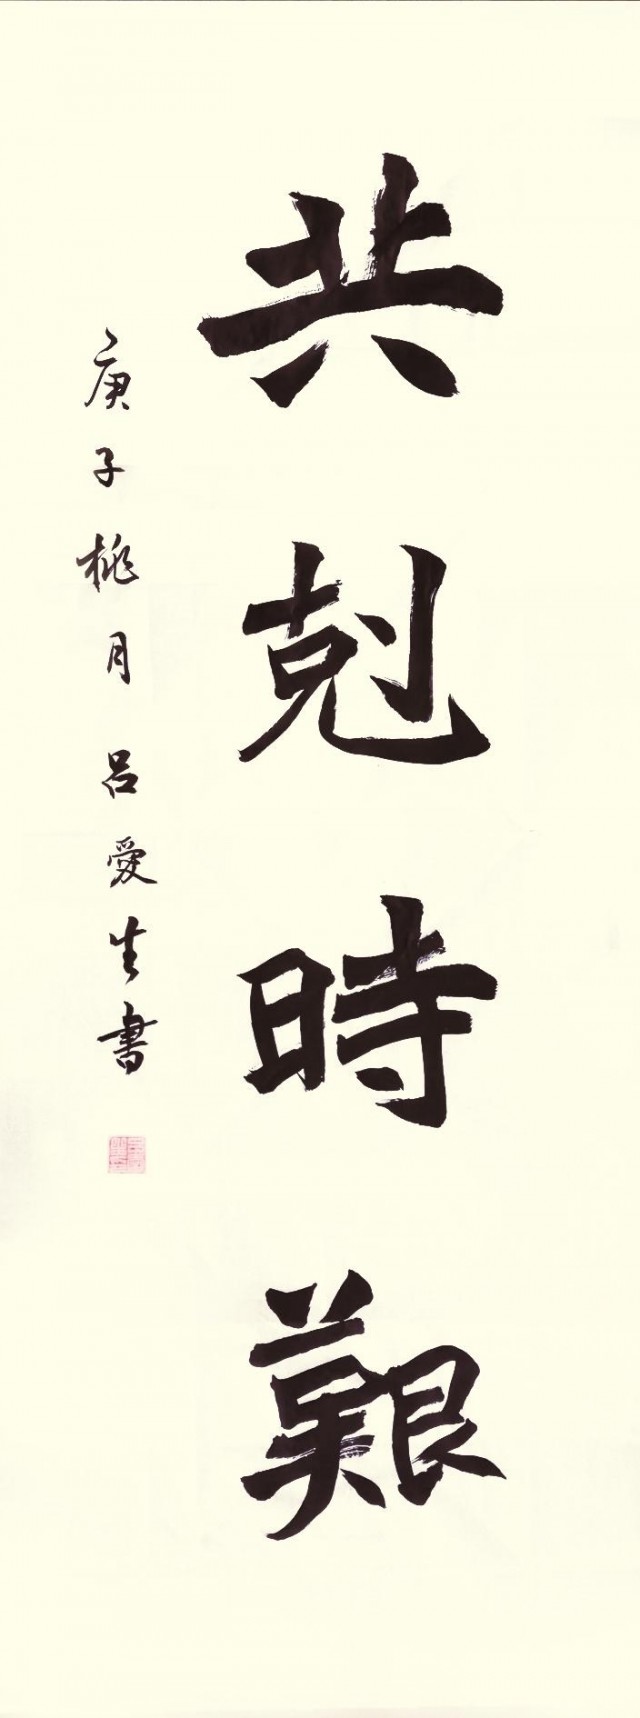 共剋時艱
庚子桃月吕愛生書